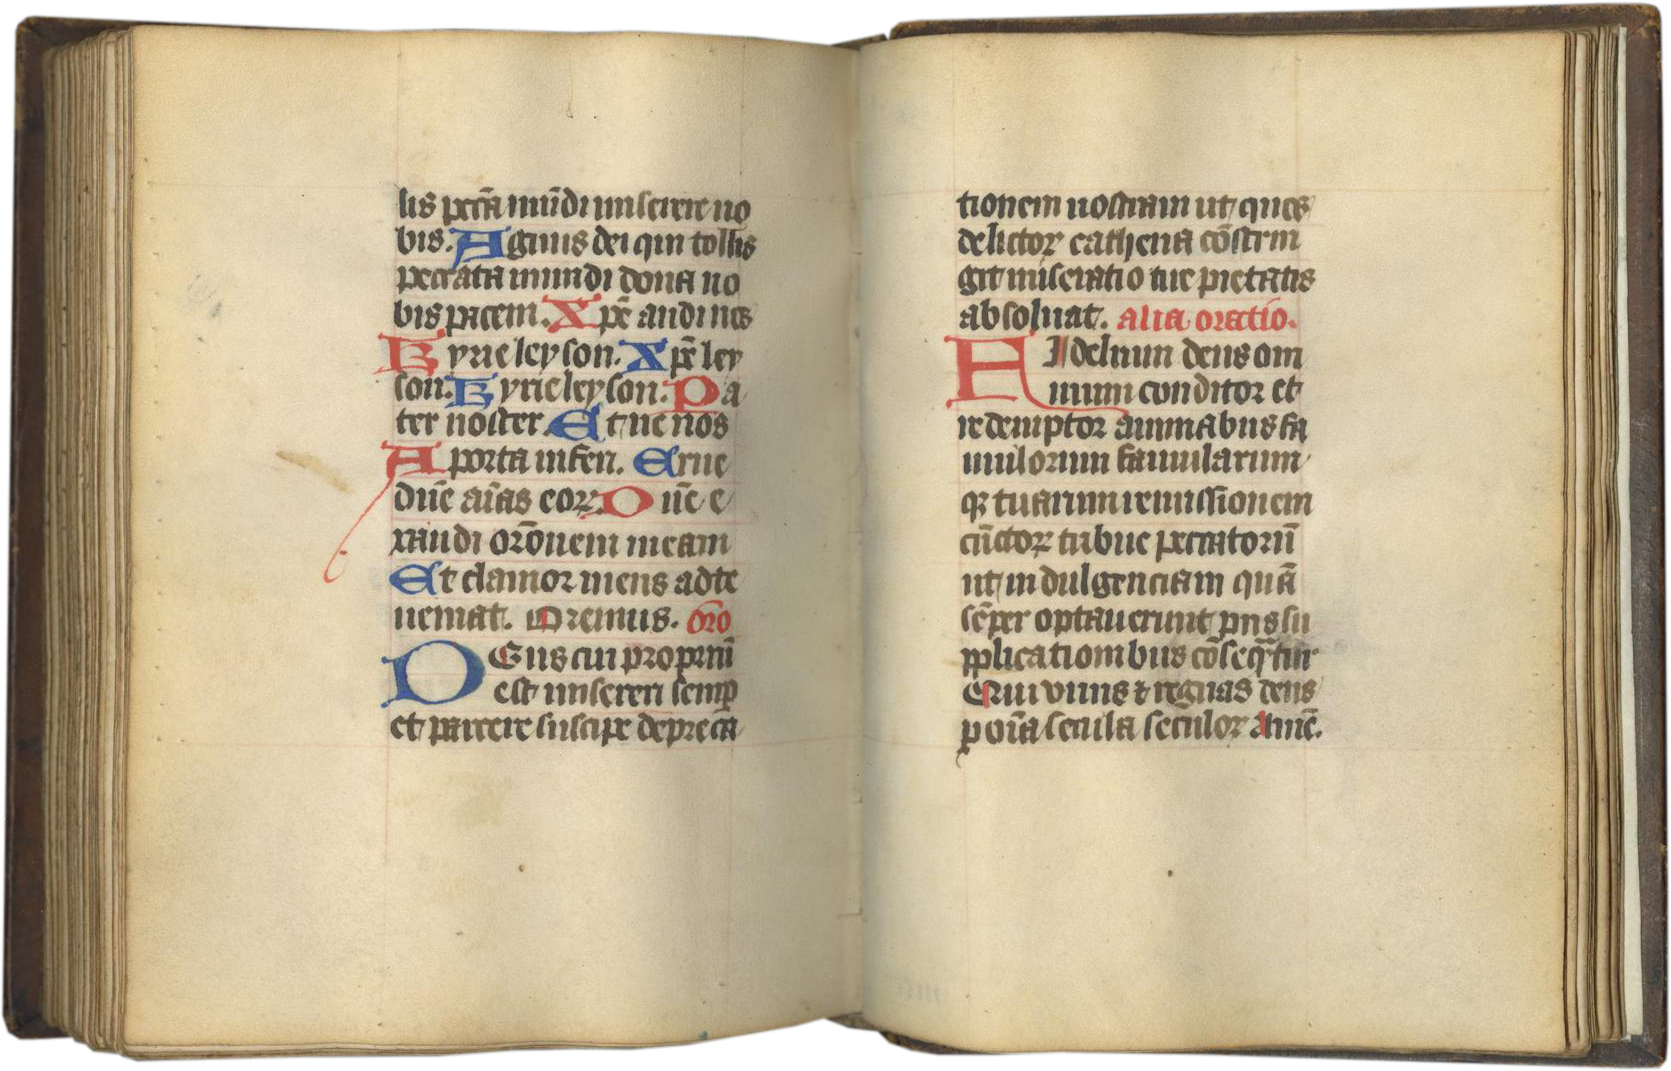 lis pctã mũdi miserere no
bis. Agnus dei qui tollis
peccata mundi dona no
bis pacem. Xpẽ audi nos
Kyrieleyson. Xpẽ ley
son. Kyrieleyson. Pa
ter noster. Et ne nos
A porta inferi. Erue
dñe aĩas eoꝝ. Dñe e
xaudi orõnem meam
Et clamor meus ad te
ueniat. Oremus. oro
Deus cui propriũ
est misereri semꝑ
et parcere suscipe depreca
tionem nostram ut quos
delictoꝝ cathena cõstrin
git miseratio tue pietatis
absoluat. alia oratio.
Fidelium deus om
nium conditor et
redemptor animabus fa
mulorum famularum
qꝫ tuarum remissionem
cũctoꝝ tribue peccatorũ
ut indulgenciam quã
sẽper optauerunt pijs su
pplicationibus cõsequãtur
Qui viuis ⁊ regnas deus
ꝑ oĩa secula seculoꝝ amẽ.